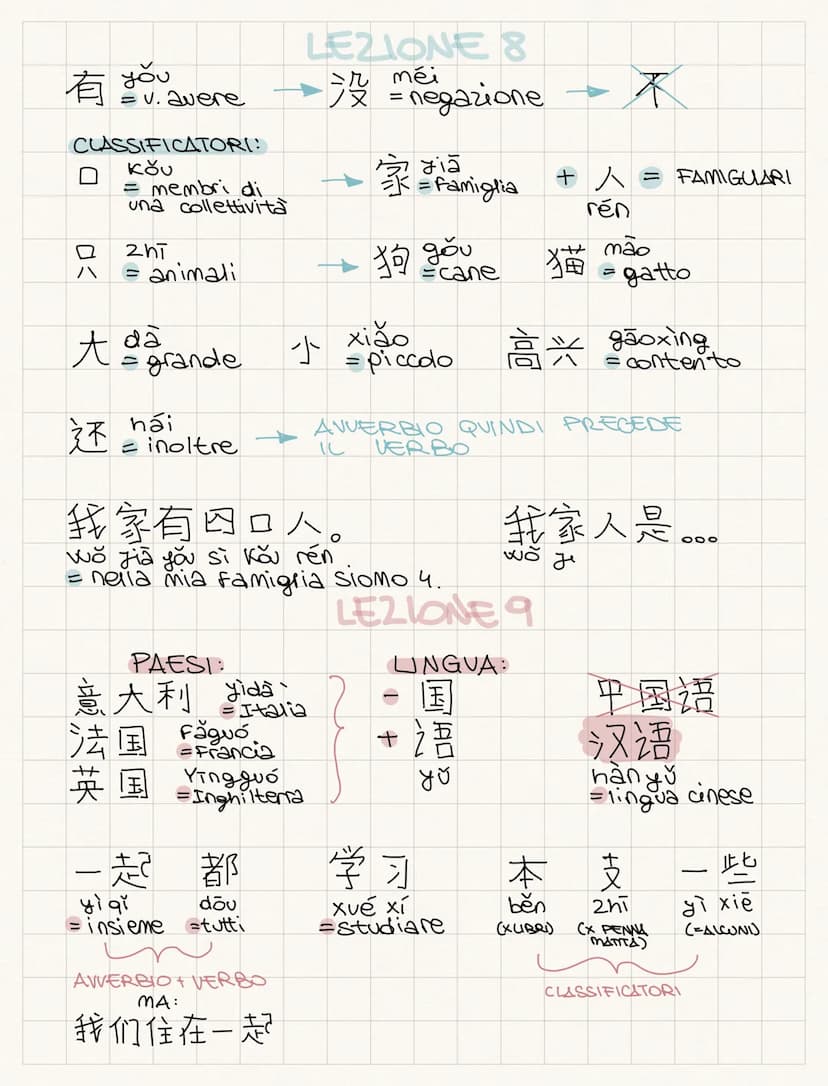 LEZIONE 8
有 yǒu = v. avere → 没 méi = negazione → 不
CLASSIFICATORI:
口 kǒu = membri di una collettività → 家 jiā = famiglia + 人 rén = FAMIGLIARI
只 zhī = animali → 狗 gǒu = cane 猫 māo = gatto
大 dà = grande 小 xiǎo = piccolo 高兴 gāoxìng = contento
还 hái = inoltre → AVVERBIO QUINDI PRECEDE IL VERBO
我家有四口人。 我家人是...
wǒ jiā yǒu sì kǒu rén wǒ ji
= nella mia famiglia siamo 4.
LEZIONE 9
PAESI: LINGUA:
意大利 yìdàˋ = Italia - 国 中国语
法国 Fǎguó = Francia + 语 yǔ 汉语
英国 Yīngguó = Inghilterra hànyǔ = lingua cinese
一起 都 学习 本 支 一些
yìqǐ dōu xué xí běn zhī yì xiē
= insieme = tutti = studiare (X LIBRI) (X PENNA MATITA) (= ALCUNI)
AVVERBIO + VERBO CLASSIFICATORI
MA:
我们住在一起